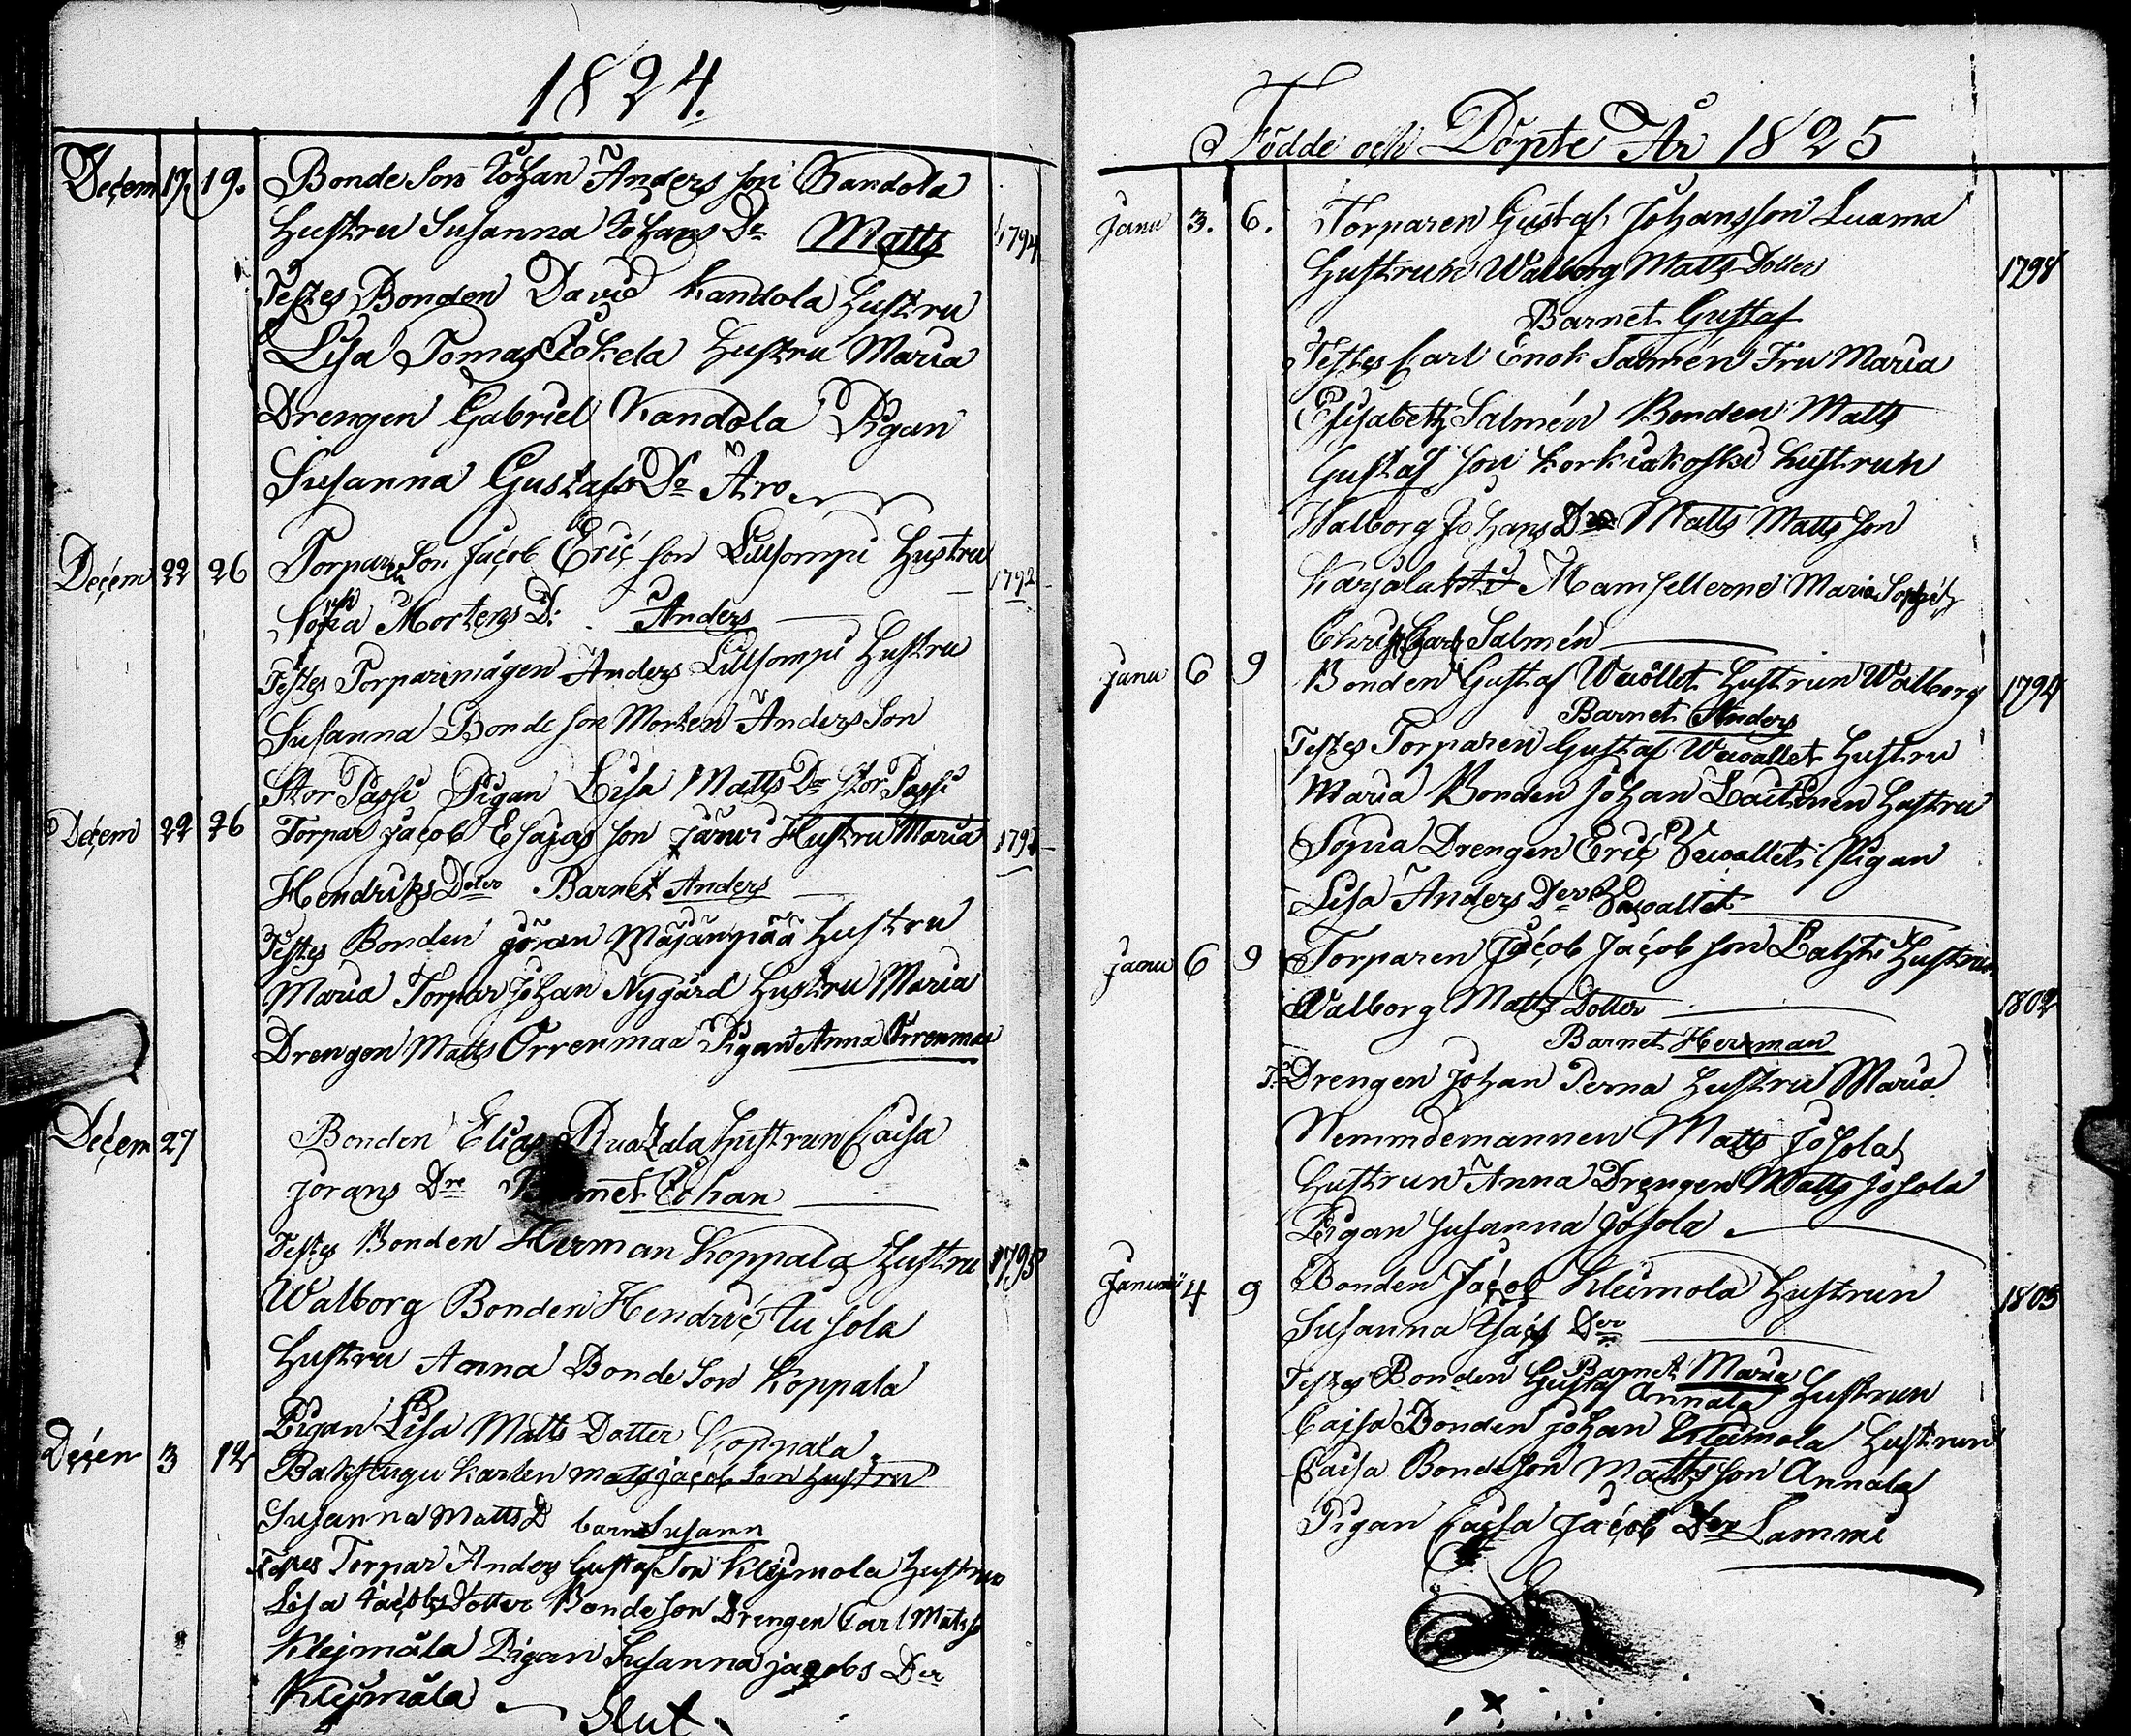 1824.
Decem 17. 19. Bonde Son Johan Anders son Kandola
Hustru Susanna Johans Dr Matts 1794
Testes Bonden David Kandola Hustru
Lisa Tomas Hustru Maria
Drengen Gabriel Kandola Pigan
Susanna Gustafs Dr Aro
Decem 22 26 Torpare Son Jacob Eric son Lillsompi Hustru 1792
Sofia Mortens D. Anders
Testes Torparemågen Anders Lillsompi Hustru
Susanna Bonde son Morten Anders Son
Stor Passi Pigan Lisa Matts Dr Stor Passi
Decem 22 26 Torpar Jacob Esajas son Järwi Hustru Maria
Hendriks Doter Barnet Anders
Testes Bonden Jöran Mäjänpää Hustru
Maria Torpar Johan Nygård Hustru Maria
Drengen Matts Orrenmaa Pigan Anna Orrenmaa
Decem 27 Bonden Elias Hustrun Caisa
Jörans Dr Barnet Johan
Testes Bonden Herman Koppala Hustru 1795
Walborg Bonden Hendric
Hustru Anna Bonde Son Koppala
Pigan Lisa Matts Dotter Koppala
Decem 3 12 Bakstugu Karlen Mats Jacob Son Hustru
Susanna Matts D barn Susann
Testes Torpar Anders Gustaf Son Klejmola Hustru
Lisa Jacobs Dotter Bonde son Drengen Carl Mats s
Klejmåla Pigan Susanna Jacobs Der
Klejmåla
Slut.
Födde och Döpte År 1825
Janu 3. 6. Torparen Gustaf Johansson Luoma
Hustrun Walborg Matts Dotter 1798
Barnet Gustaf
Testes Carl Enok Salmén Fru Maria
Elisabeth Salmén Bonden Matts
Gustaf son Korkiakoski Hustrun
Walborg Johans Der Matts Matts Son
Karjalahti Mamsellerne Maria
Salmén
Janu 6 9 Bonden Gustaf Hustrun Walborg 1794
Barnet Anders
Testes Torparen Gustaf Hustru
Maria Bonden Johan Laitinen Hustru
Sofia Drengen Eric Pigan
Lisa Anders Der
Janu 6 9 Torparen Jacob Jacob son Lahti Hustrun
Walborg Matts Dotter 1802
Barnet Herman
T. Drengen Johan Perna Hustru Maria
Nemmdemannen Matts Josola
Hustrun Anna Drengen Matts Josola
Pigan Susanna Josola
Januari 4 9 Bonden Jacob Kleimola Hustrun 1805
Susanna Der
Barnet Maria
Testes Bonden Gustaf Annala Hustrun
Cajsa Bonden Johan Kleimola Hustrun
Caisa Bondeson Matts son Annala
Pigan Cajsa Jacob Der Lammi